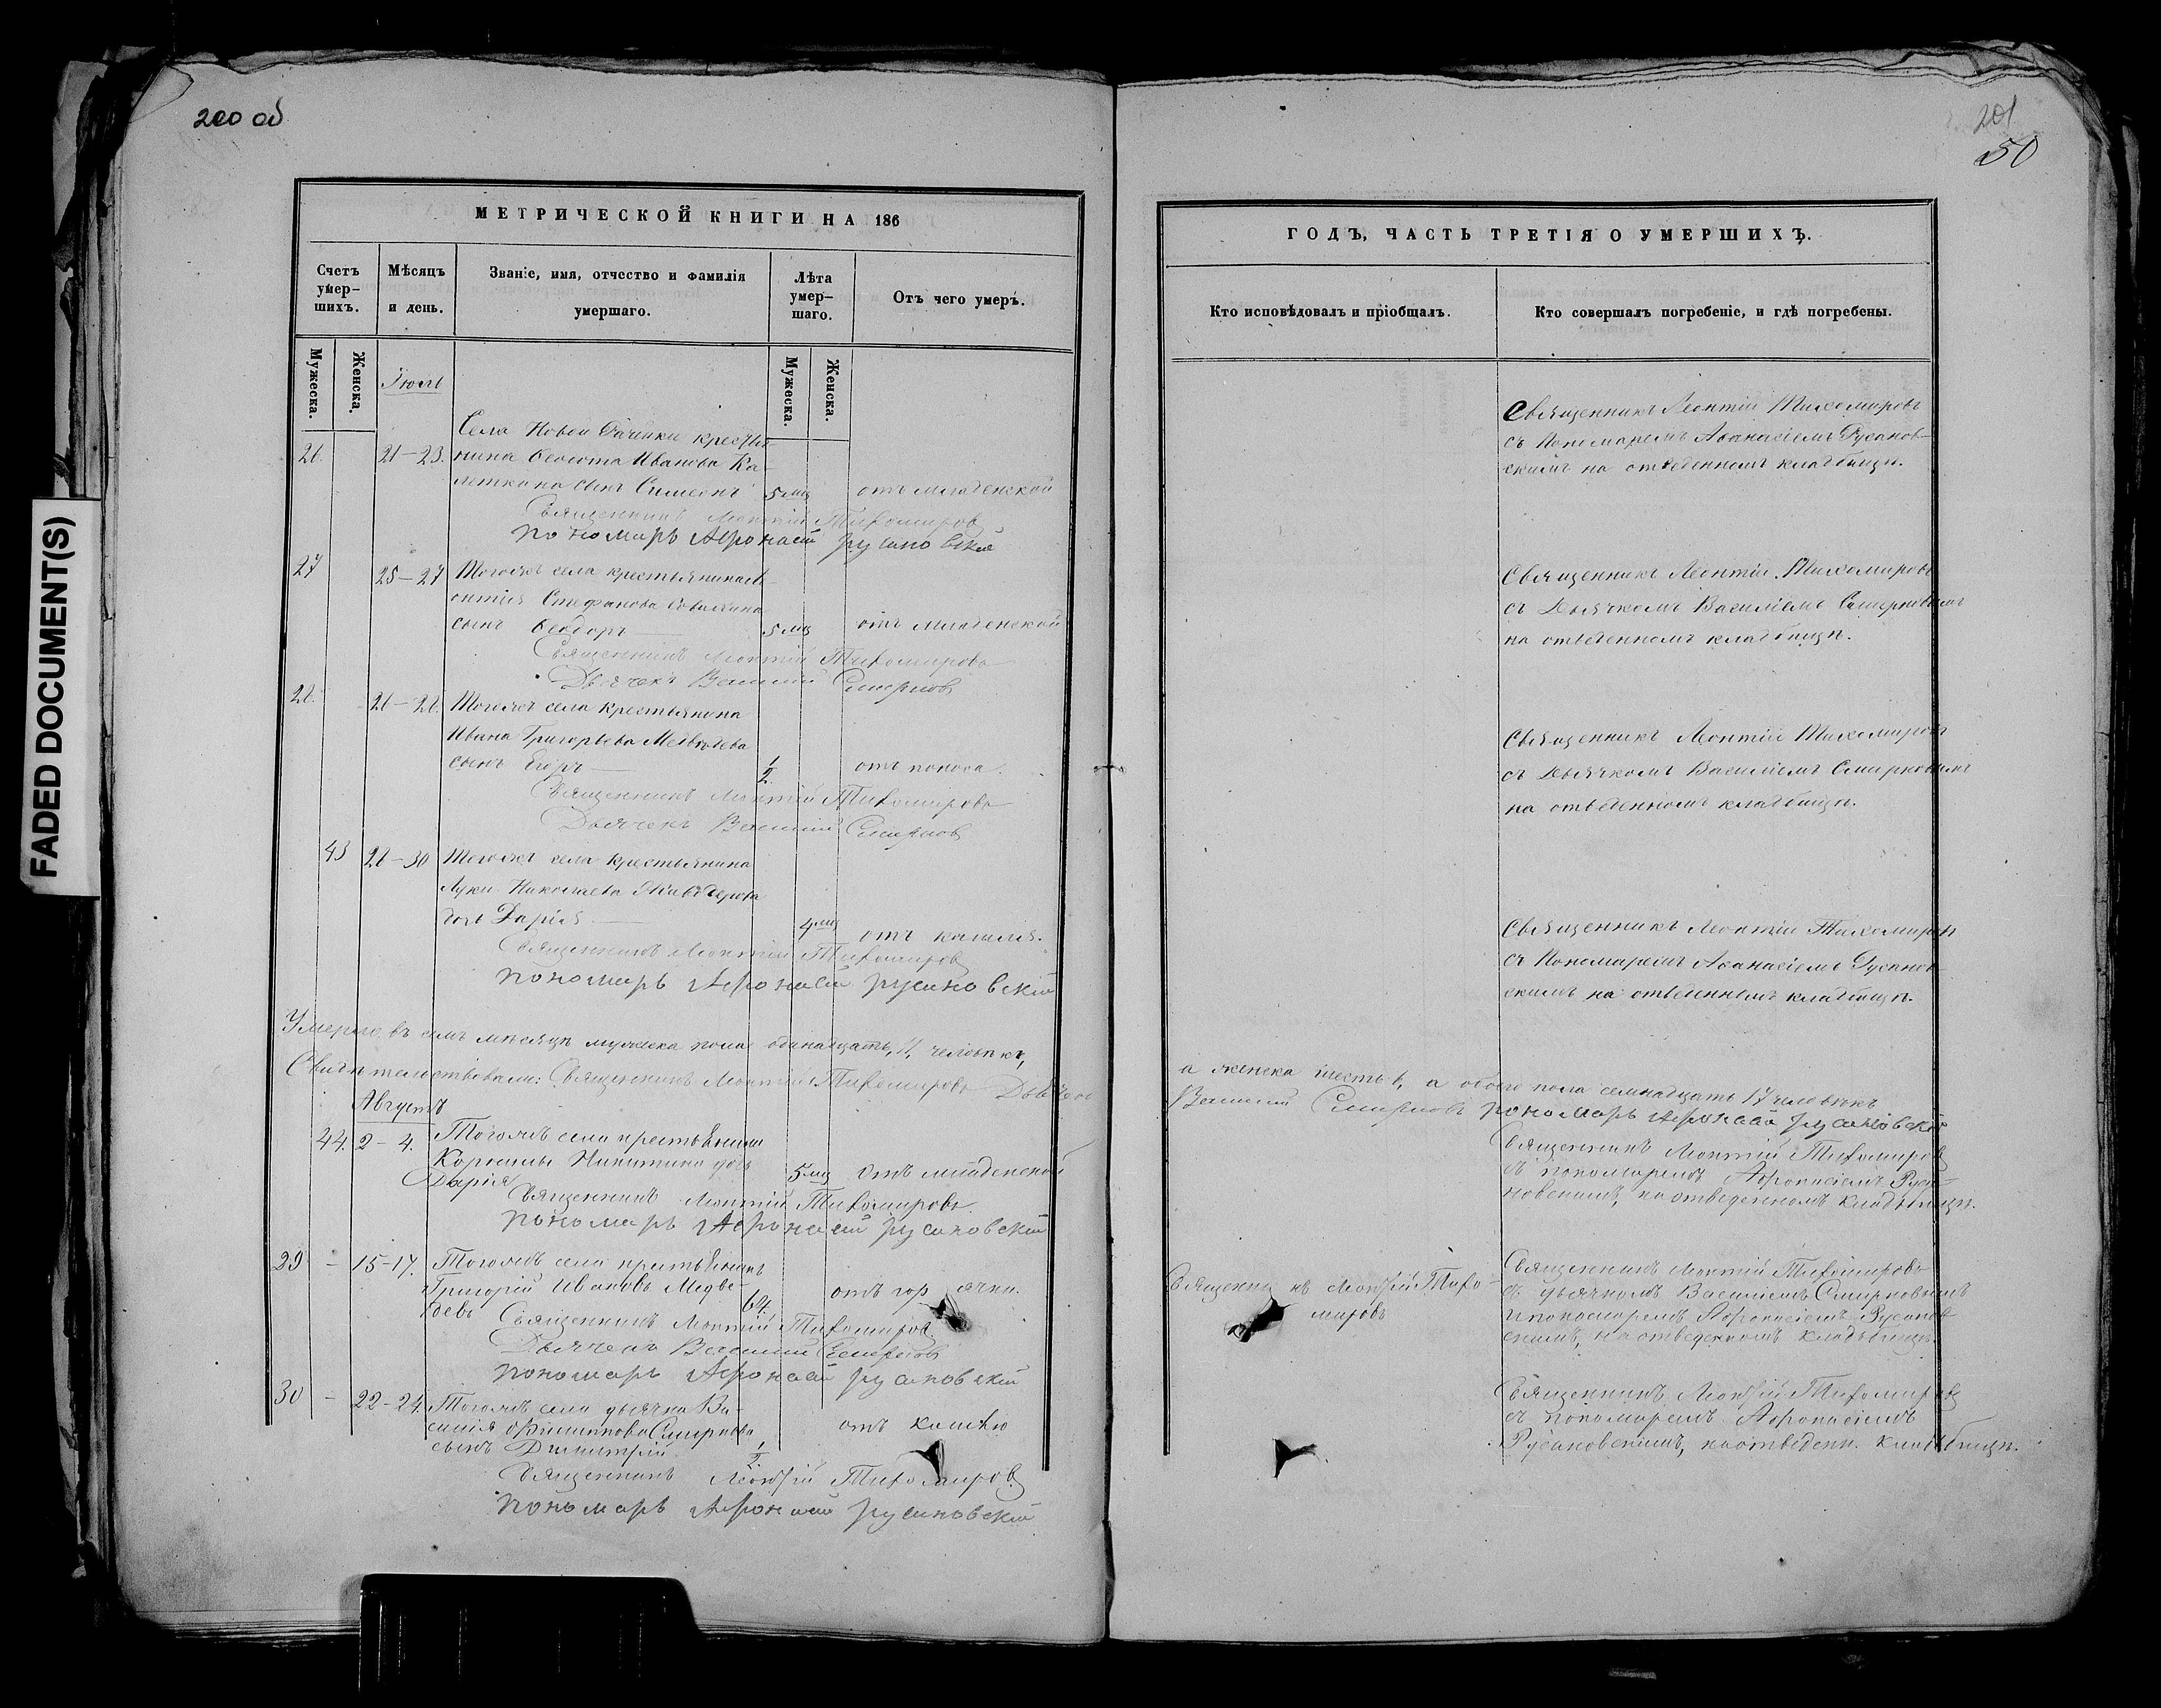 200 об
МЕТРИЧЕСКОЙ КНИГИ НА 186
Счетъ умер-
шихъ.
Мѣсяцъ
и день.
Званіе, имя, отчество и фамилія
умершаго.
Лѣта
умер-
шаго.
Отъ чего умеръ.
Мужеска.
Женска.
Мужеска.
Женска.
Іюль
26.
21-23.
Села Новой крестья-
нина Ѳеодота Иванова Ка-
сынъ Симеонъ
5 мц
отъ младенской
Священникъ Леонтій Тихомировъ
пономарь Афонасій Русановскій
27
25-27
Тогожъ села крестьянина Ле-
онтія Стефанова
сынъ Ѳеодоръ
5 мц
отъ младенской
Священникъ Леонтій Тихомировъ
Дьячекъ Василий Смирновъ
28.
26-28.
Тогожъ села крестьянина
Ивана Григорьева Медвѣдева
сынъ
1/2
отъ поноса.
Священникъ Леонтій Тихомировъ
Дьячекъ Василий Смирновъ
43
28-30
Тогожъ села крестьянина
Луки Николаева
дочь Дарія
4 мц
отъ кашля.
Священникъ Леонтій Тихомировъ
пономарь Афонасій Русановскій
Умерло въ семъ мѣсяцѣ мужеска пола одинадцать, 11, человѣкъ,
Свидѣтельствовали: Священникъ Леонтій Тихомировъ Дьячекъ
Августъ
44.
2-4.
Тогожъ села крестьянина
Никитина дочь
Дарія
5 мц
отъ младенской
Священникъ Леонтій Тихомировъ.
пономарь Афонасій Русановскій
29
-
15-17.
Тогожъ села крестьянинъ
Григорій Ивановъ Медве-
девъ
64.
отъ гор ячки.
Священникъ Леонтій Тихомировъ
Дьячекъ Василий Смирновъ
пономарь Афонасій Русановскій
30
-
22-24.
Тогожъ села дьячка Ва-
силія Филиппова Смирнова
сынъ Димитрій
1/2
отъ кашлю
Священникъ Леонтій Тихомировъ
пономарь Афонасій Русановскій
201
50
ГОДЪ, ЧАСТЬ ТРЕТІЯ О УМЕРШИХЪ.
Кто исповѣдовалъ и пріобщалъ.
Кто совершалъ погребеніе, и гдѣ погребены.
Священникъ Леонтій Тихомировъ
съ Пономаремъ Афанасіемъ Русанов-
скимъ на отведенномъ кладбищѣ.
Священникъ Леонтій Тихомировъ
съ Дьячкомъ Василіемъ Смирновымъ
на отведенномъ кладбищѣ.
Священникъ Леонтій Тихомировъ
съ Дьячкомъ Василіемъ Смирновымъ
на отведенномъ кладбищѣ.
Священникъ Леонтій Тихомировъ
съ Пономаремъ Афанасіемъ Русанов-
скимъ на отведенномъ кладбищѣ.
а женска шесть 6, а обоего пола семнадцать 17 человѣкъ
Василий Смирновъ пономарь Афонасій Русановскій
Священникъ Леонтій Тихомировъ
съ пономаремъ Афонасіемъ Руса-
новскимъ, на отведенномъ кладбищѣ.
Священникъ Леонтій Тихо-
мировъ
Священникъ Леонтій Тихомировъ
съ дьячкомъ Василіемъ Смирновымъ
и пономаремъ Афонасіемъ Русанов-
скимъ, на отведенномъ кладбищѣ.
Священникъ Леонтій Тихомировъ
съ пономаремъ Афонасіемъ
Русановскимъ, на отведенн. кладбищѣ.
FADED DOCUMENT(S)